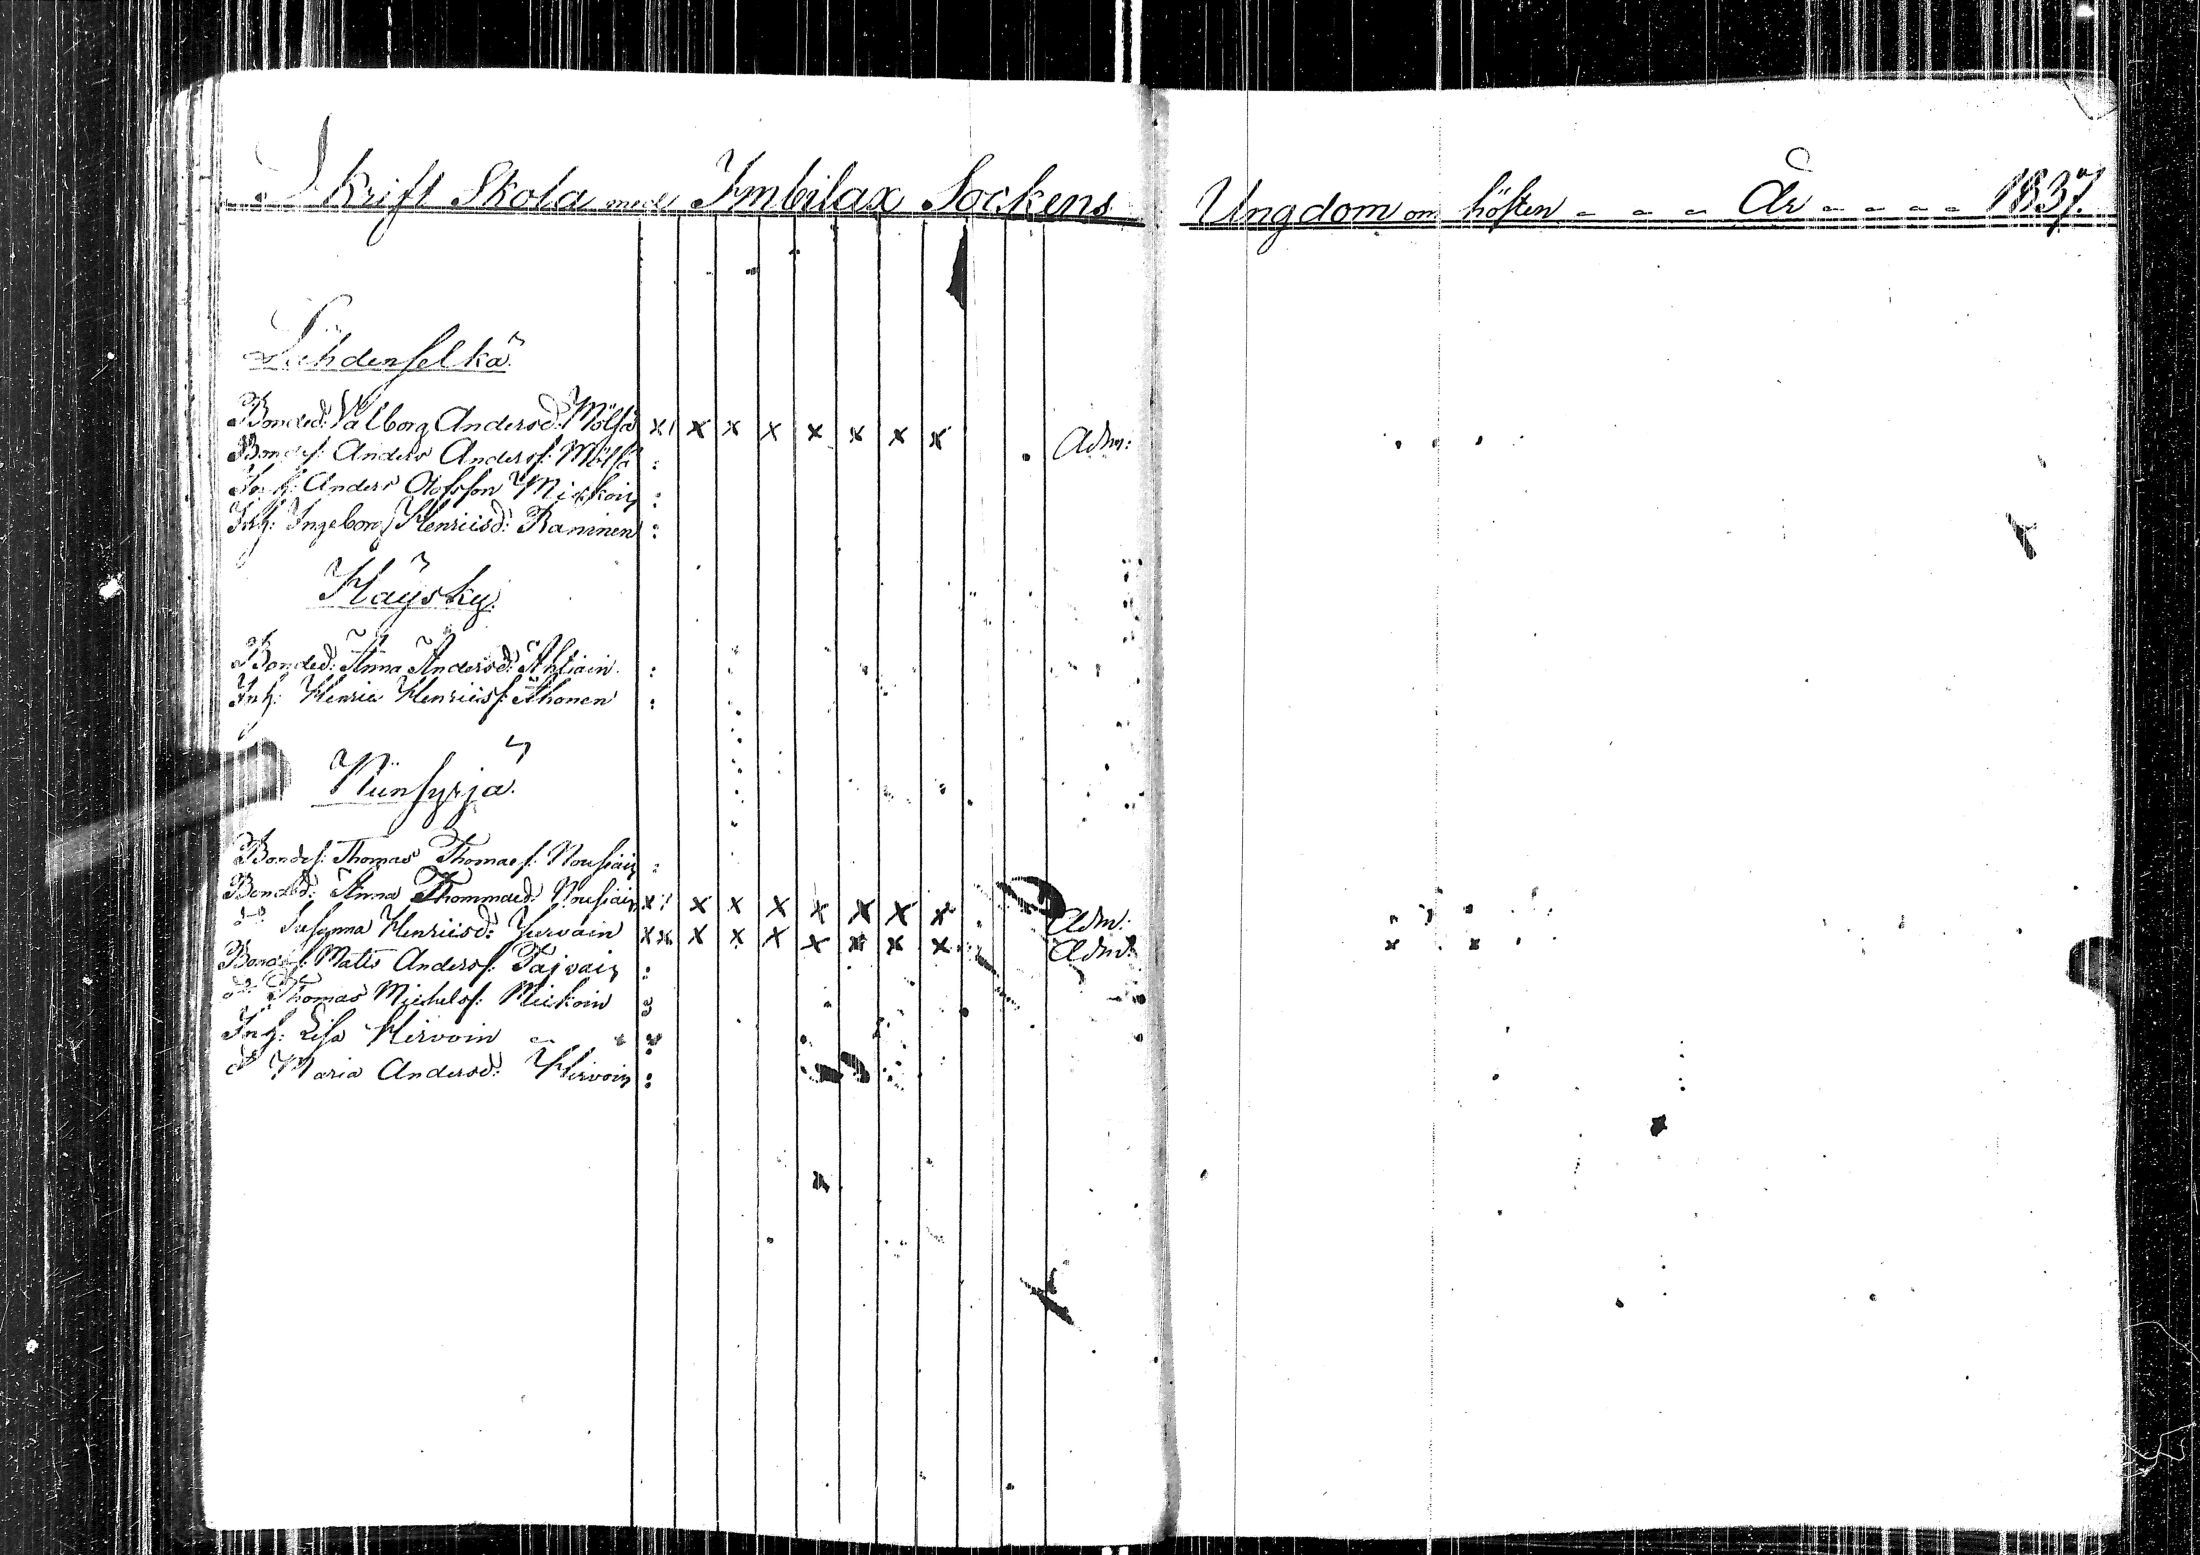 Skrift Skola med Imbilax Sockens Ungdom om hösten - - - År - - - - 1837.
Lühdenselkä.
Bonded: Valborg Andersd: Mölsä x x x x x x x x Adm:
Bondes: Anders Anderss: Mölsä :
Inh: Anders Olofsson Mickoin :
Inh: Ingeborg Henricsd: Raninen :
Häysky.
Bonded: Anna Andersd: :
Inh: Henric Henricss: Ahonen :
Niinsyrjä.
Bondes: Thomas Thomass: Nousiain :
Bonded: Anna Thommasd: Nousiain x x x x x x x x Adm:
do Susanna Henricsd: Hirvoin x x x x x x x x Adm:
Bondes: Matts Anderss: Taivain :
do Thomas Michelss: Mickoin :
Inh: Lisa Hirvoin - :
do Maria Andersd: Hirvoin :